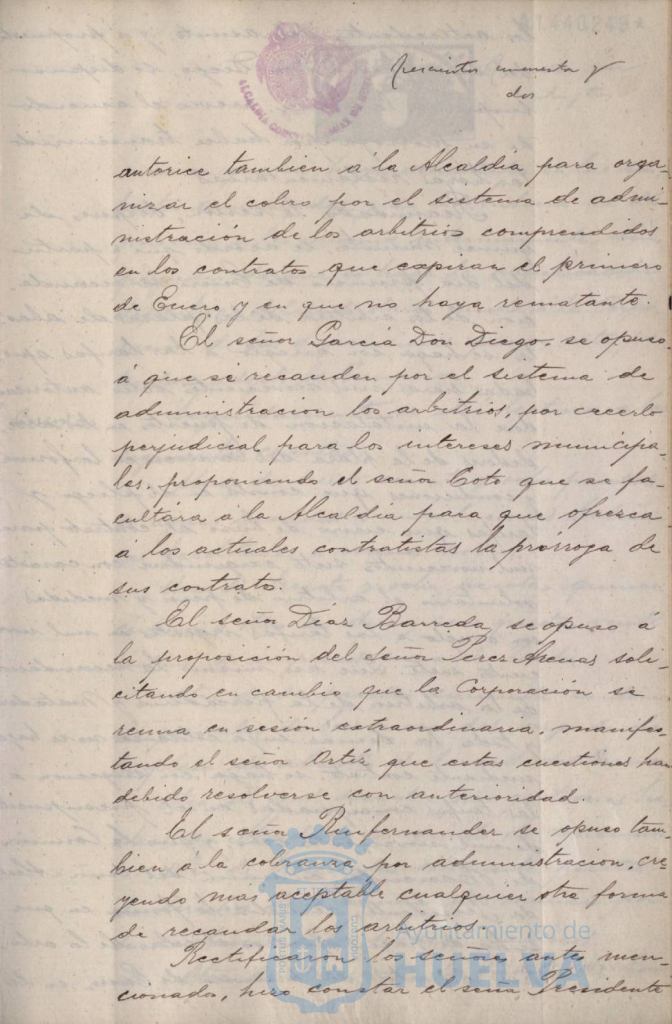 cincuenta y
dos
autorice tambien á la Alcaldía para orga-
nizar el cobro por el sistema de admi-
nistración de los arbitrios comprendidos
en los contratos que expiran el primero
de Enero y en que no haya rematante.
El señor García Don Diego, se opuso
á que se recauden por el sistema de
administracion los arbitrios, por creerlo
perjudicial para los intereses municipa-
les, proponiendo el señor Coto que se fa-
cultára á la Alcaldía para que ofrezca
á los actuales contratistas la prórroga de
sus contrato.
El señor Díaz Barreda se opuso á
la proposición del señor Perez Arenas soli-
citando en cambio que la Corporación se
reuna en sesión extraordinaria, manifes-
tando el señor Ortíz que estas cuestiones han
debido resolverse con anterioridad.
El señor Ruifernandez se opuso tam-
bien á la cobranza por administracion, cre-
yendo mas aceptable cualquier otra forma
de recaudar los arbitrios.
Rectificaron los señores ante men-
cionados, hizo constar el señor Presidente
Ayuntamiento de
HUELVA